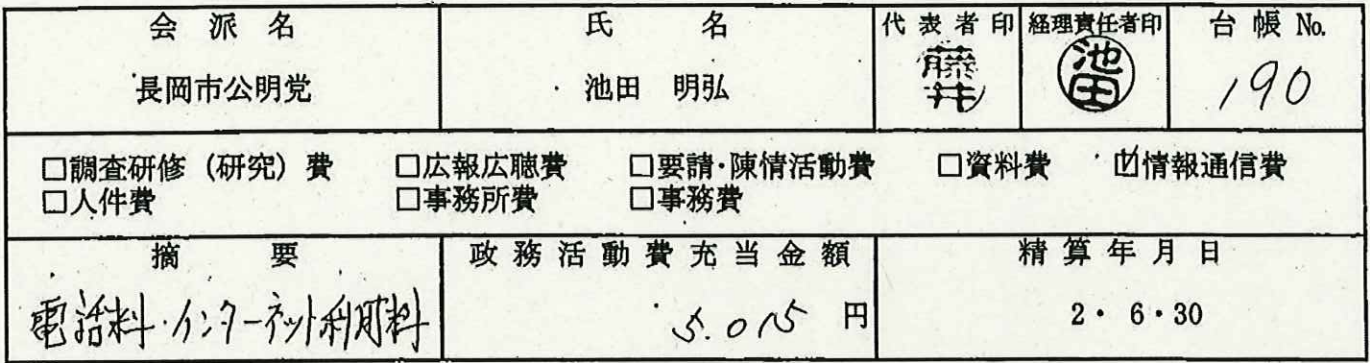 会派名 氏名 代表者印 経理責任者印 台帳 No.
長岡市公明党 池田 明弘 藤井 池田 190
□調査研修（研究）費 □広報広聴費 □要請・陳情活動費 □資料費 ☑情報通信費
□人件費 □事務所費 □事務費
摘要 政務活動費充当金額 精算年月日
電話料・インターネット利用料 5.015 円 2・6・30